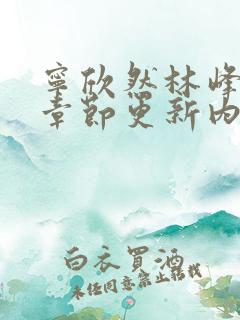 寧欣然林峰
章節更新內
白衣買酒
未任同意禁止轉載